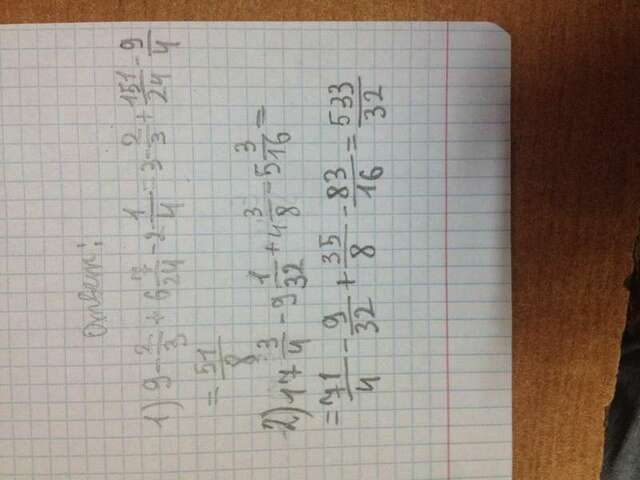 ответ:
1) 9 - 2/3 + 6 7/24 - 2 1/4 = 3 - 2/3 + 151/24 - 9/4
= 51/8
2) 17 3/4 - 9 1/32 + 4 3/8 - 5 3/16 =
= 71/4 - 9/32 + 35/8 - 83/16 = 533/32